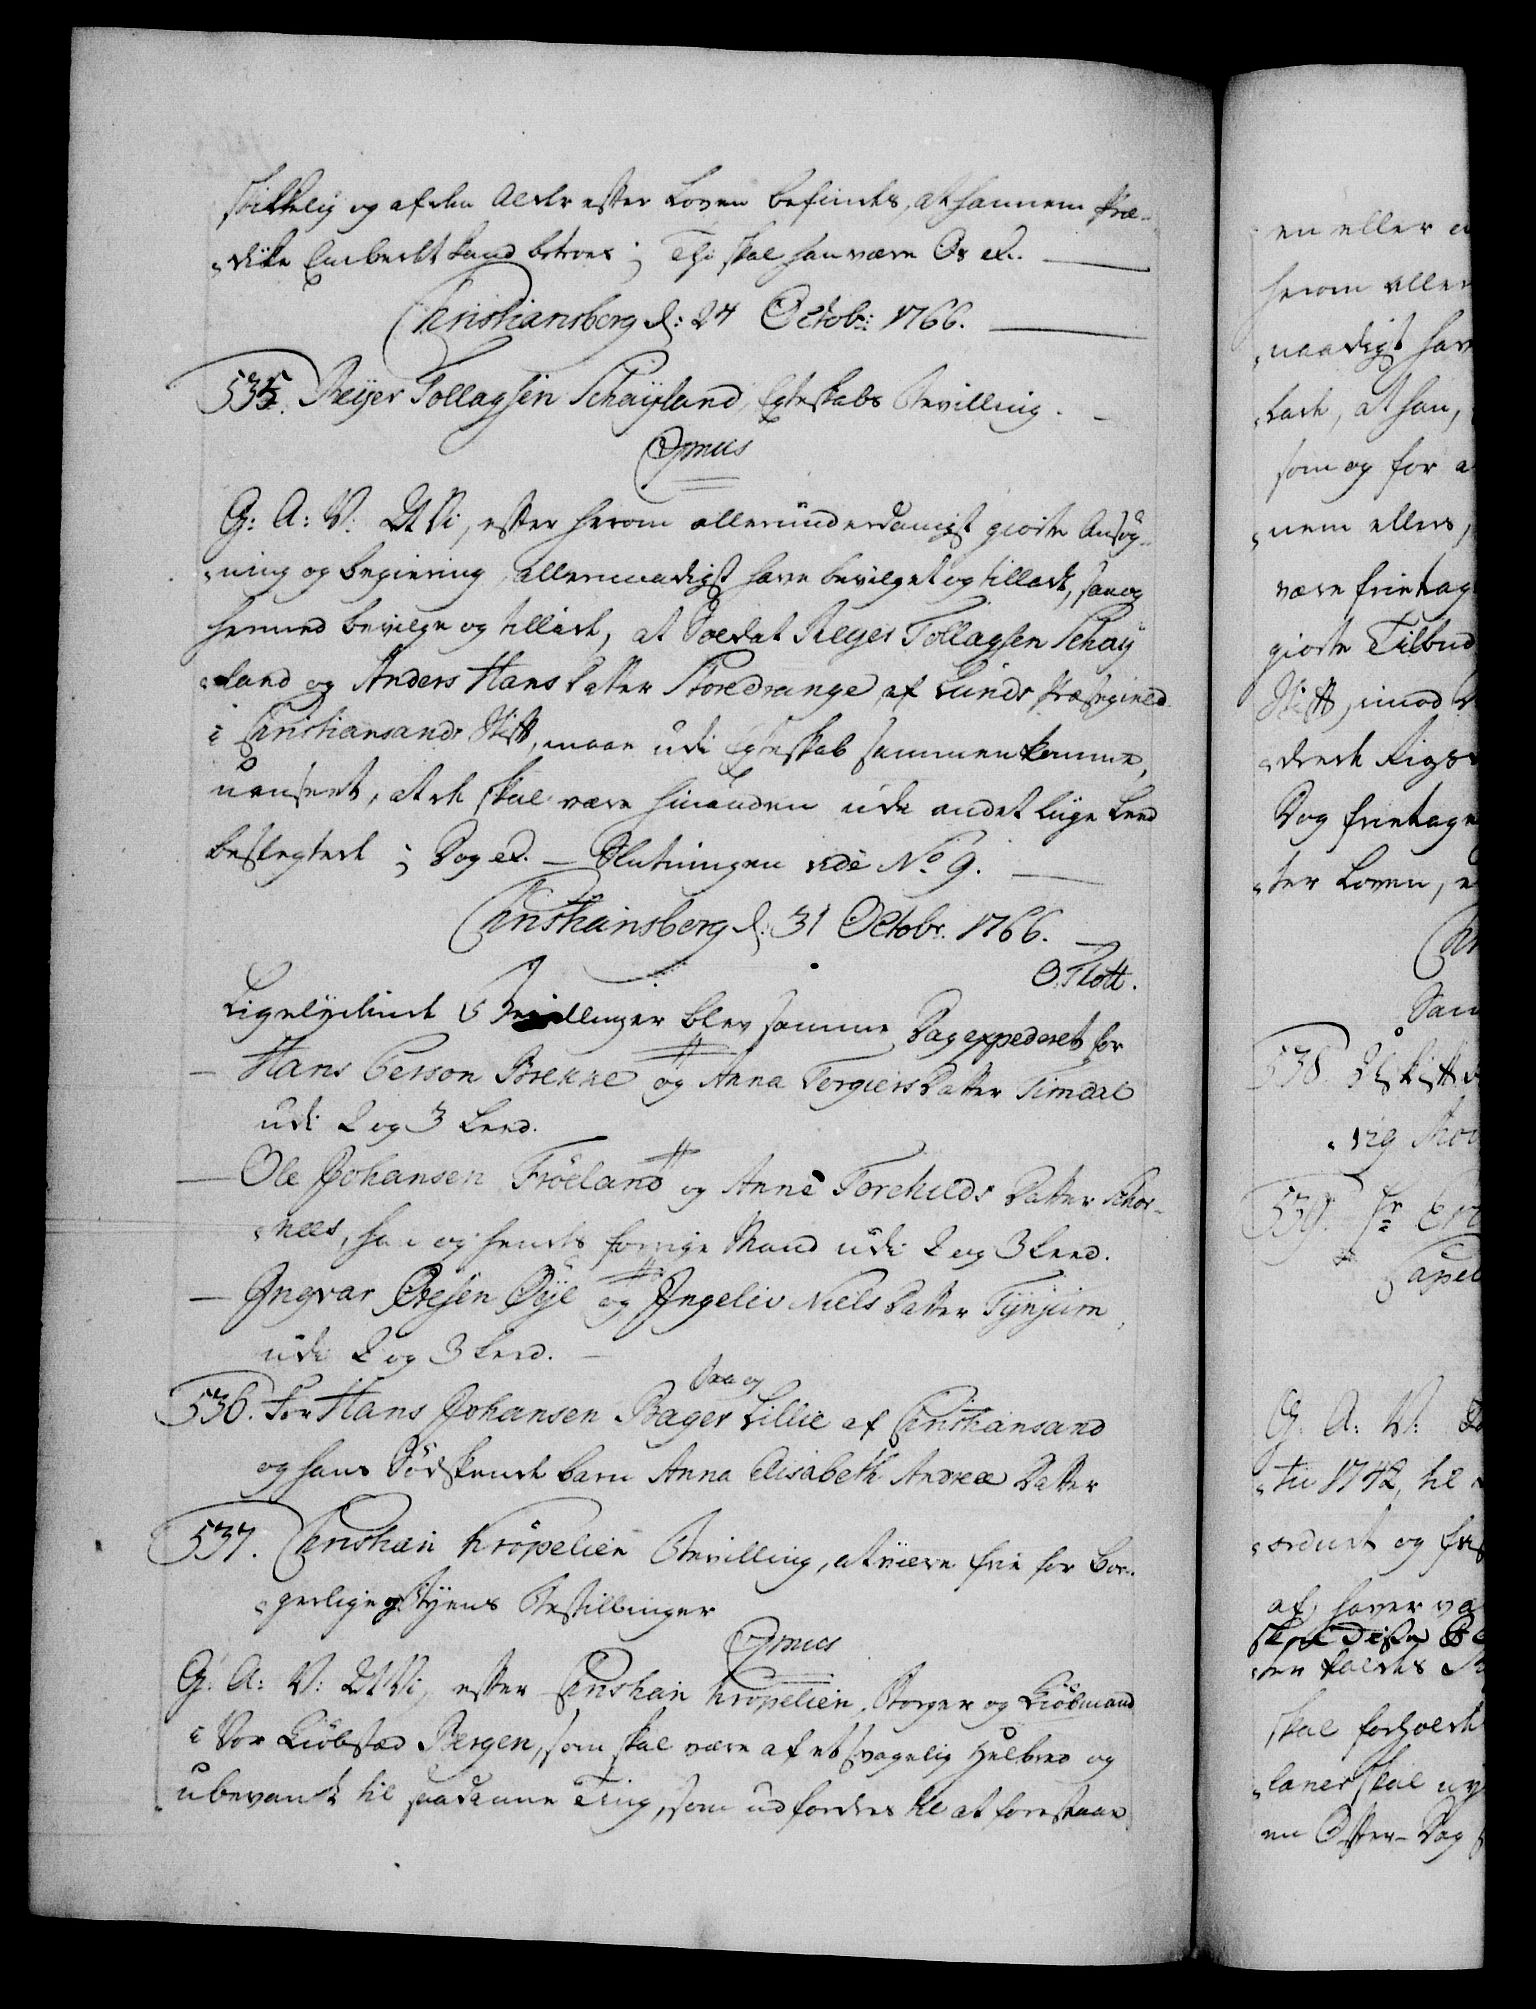 skikkelig og af den Alder efter Loven befindes, at hannem Præ-
-dike Embedet kand betroes; Thi skal han være Os etc.
Christiansberg d: 24 Octobr: 1766.
535. Reÿer Tollagsen Schaÿland, Egteskabs Bevilling.
Cgnus
G: A: V: At Vi, efter herom allerunderdanigst giorte Ansøg-
-ning og begiering, allernaadigst have bevilget og tilladt, saa og
hermed bevilge og tillade, at Soldat Reÿer Tollagsen Schaÿ
-land og Anders Hans Datter Storedrange af Lunds Præstegield
i Christiansands Stift, maae udi Egteskab sammenkomme,
uanseet, at de skal være hinanden udi andet liige Leed
beslegtede; Dog etc. — Slutningen vide No 9.
Christiansberg d: 31 Octobr. 1766.
O. Thott.
Ligelydende 3 Bevillinger blev samme Dag expederet for
— Hans Person Brekke og Anna Torgiers Datter Timdal
udi 2 og 3 Leed.
— Ole Johansen Frøeland og Anne Torchilds Datter Schor-
-nees, han og hendes forrige Mand udi 2 og 3 Leed.
— Ingvar Olesen Øÿe og Ingeliv Niels Datter Tÿnjum,
udi 2 og 3 Leed. —
Saa og
536. For Hans Johansen Bager Lillie af Christiansand
og hans Sødskende barn Anna Elisabeth Andrea Datter
537. Christian Krøpelien Bevilling, at være frie for Bor-
-gerlige og Byens Bestillinger
Cgnus
G: A: V: At Vi, efter Christian Krøpelien, Borger og Kiøbmand
i Vor Kiøbstad Bergen, som skal være af et svagelig Helbred og
ubevandt til saadanne Ting, som udfordres til at forestaae
en eller
herom aller
-naadigst hav
-ladt, at han,
som og for a
-nem ellers,
være frietag
giorte Tilbud
Stift, imod
Dog frietage
-ter Loven, e
Sam
538.
-vig
539. Hr
Capel
G: A: V:
-tii 1742, til
-ordnet og
af, haver va
-ter kaldes
skal forholde
-laner skal
en Efter-Dag